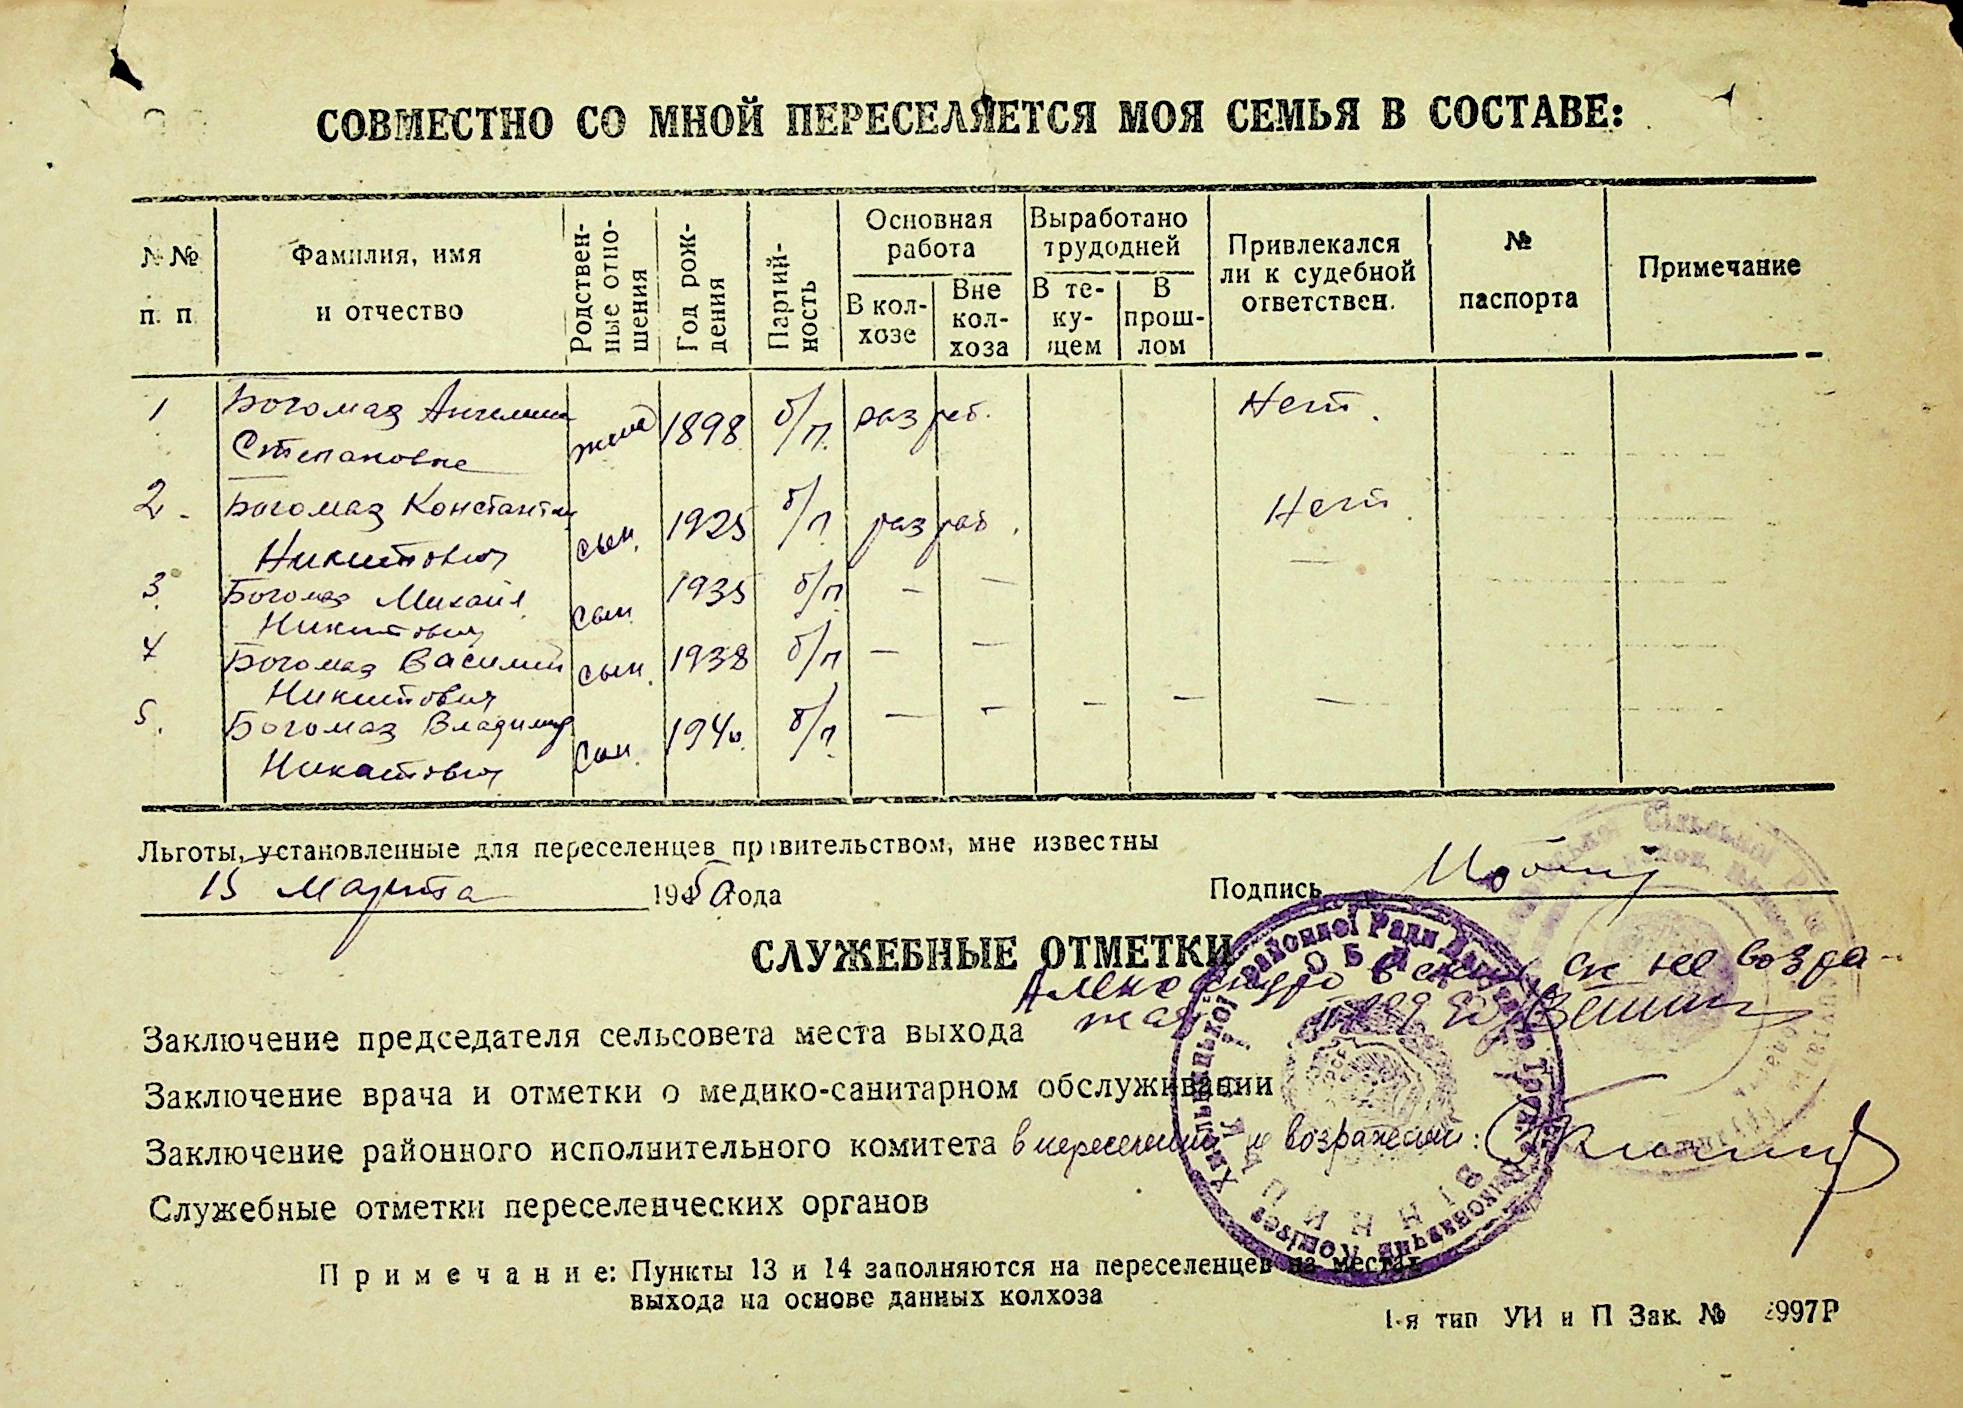 СОВМЕСТНО СО МНОЙ ПЕРЕСЕЛЯЕТСЯ МОЯ СЕМЬЯ В СОСТАВЕ:
№№ п. п
Фамилия, имя и отчество
Родственные отношения
Год рождения
Партийность
Основная работа
В колхозе
Вне колхоза
Выработано трудодней
В текущем
В прошлом
Привлекался ли к судебной ответствен.
№ паспорта
Примечание
1 Богомаз Ангелина Степановна жена 1898 б/п. разраб. Нет.
2. Богомаз Константин Никитович сын. 1925 б/п разраб. Нет.
3. Богомаз Михаил Никитович сын 1935 б/п — —
4 Богомаз Василий Никитович сын. 1938 б/п — —
5. Богомаз Владимир Никитович сын. 1940. б/п. — — — — —
Льготы, установленные для переселенцев правительством, мне известны
15 марта 1950 года
Подпись
СЛУЖЕБНЫЕ ОТМЕТКИ
Заключение председателя сельсовета места выхода
не возражает
Заключение врача и отметки о медико-санитарном обслуживании
Заключение районного исполнительного комитета в переселении не возражаем:
Служебные отметки переселенческих органов
Примечание: Пункты 13 и 14 заполняются на переселенцев на местах
выхода на основе данных колхоза
1-я тип УИ и П Зак. № 2997Р